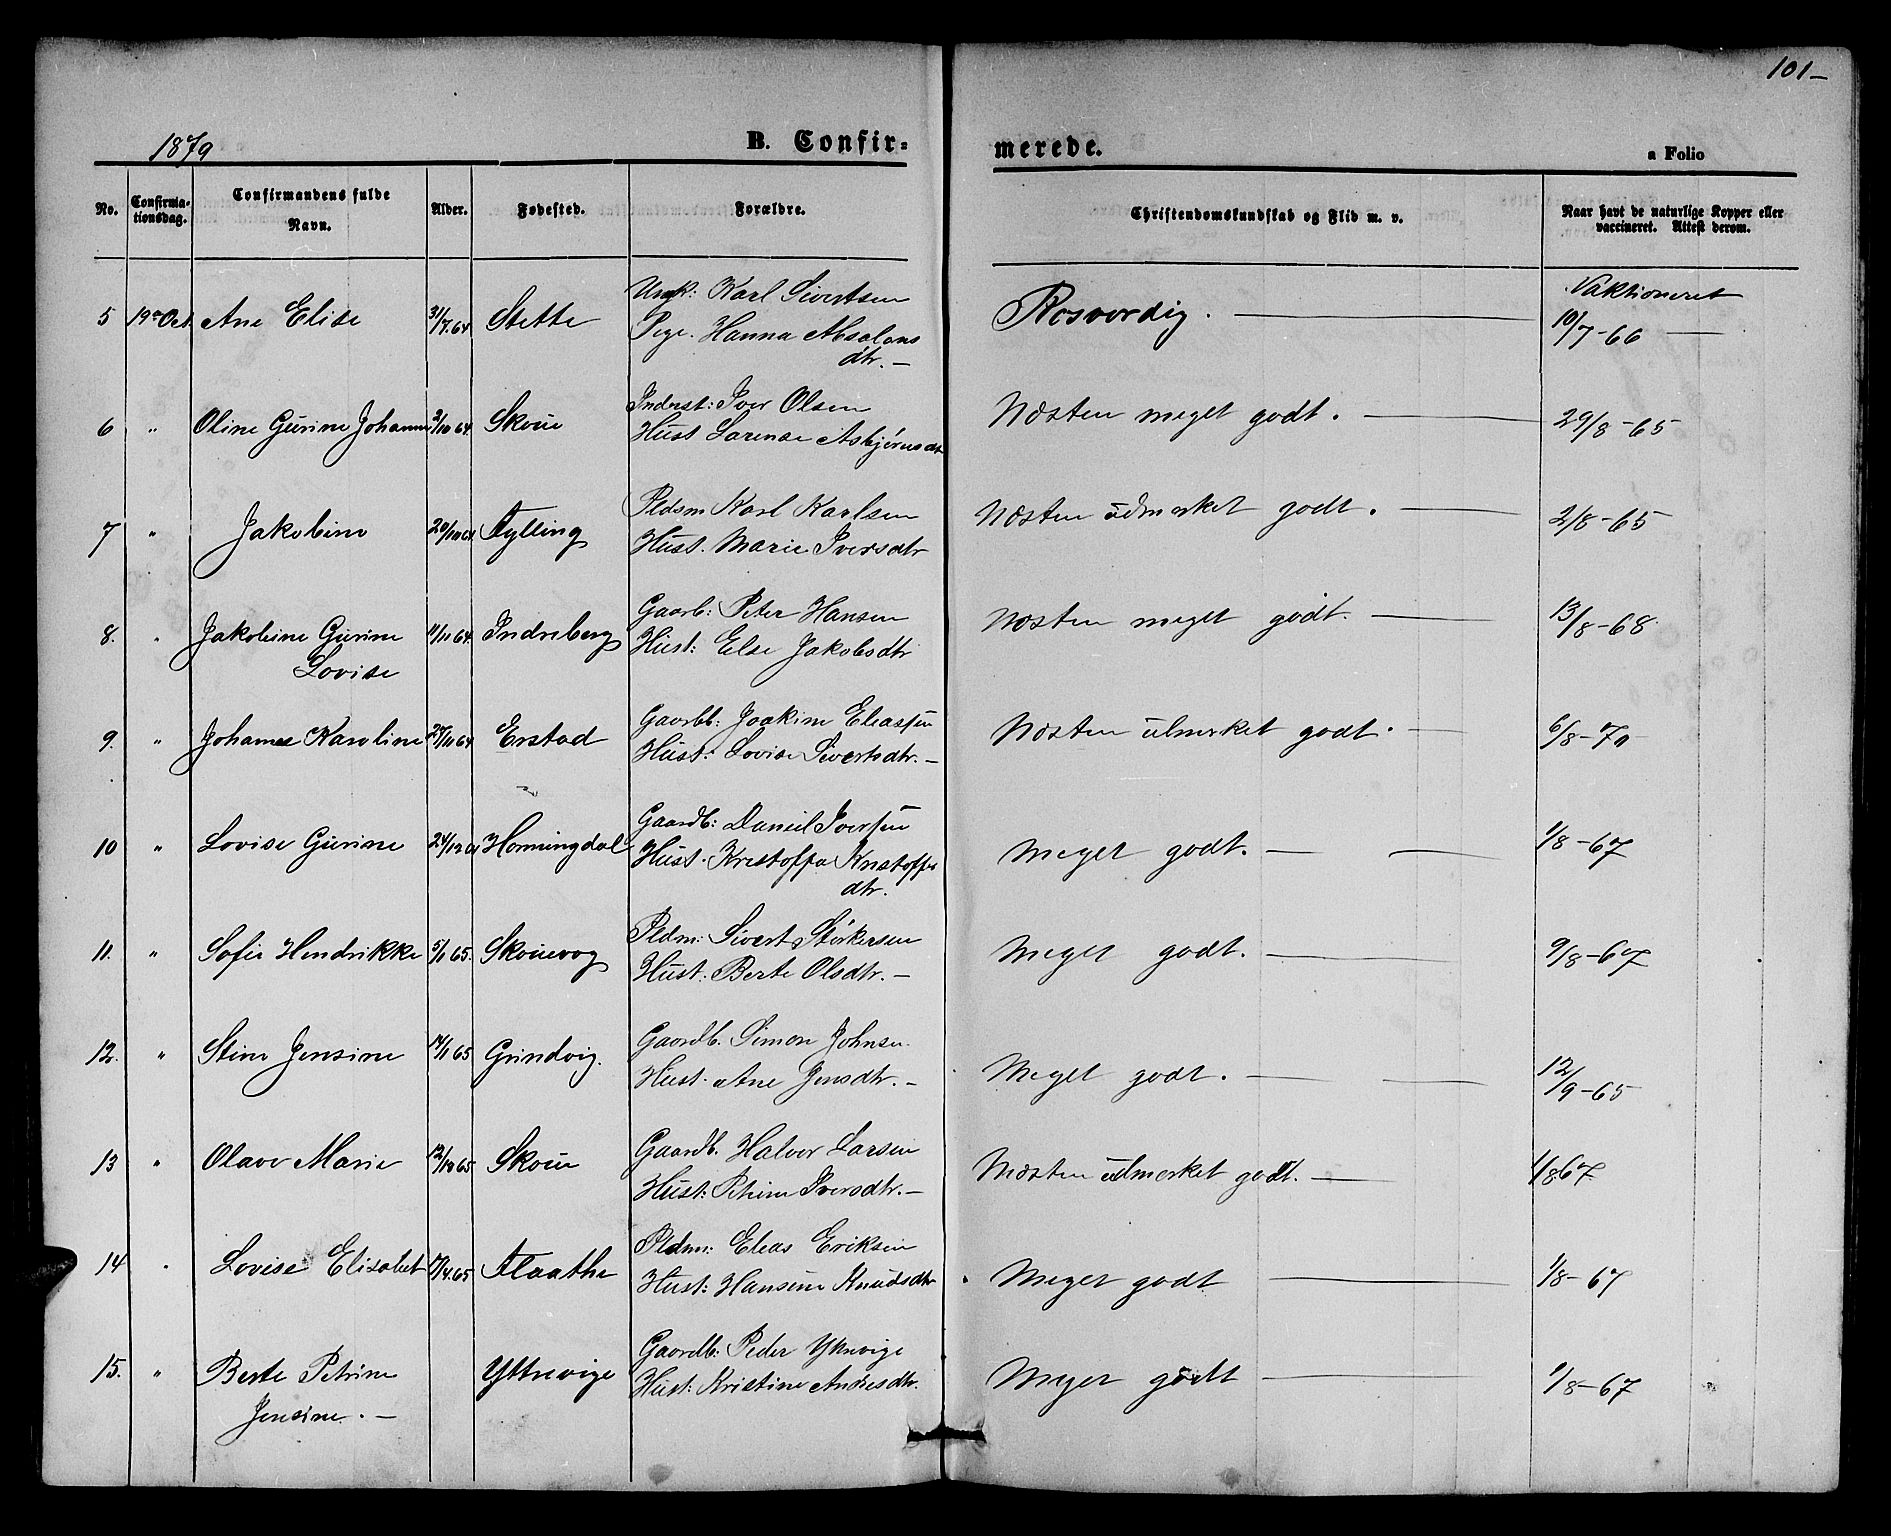 101-
1879
B. Confir=
merede.
a Folio
No.
Confirma-
tionsdag.
Confirmandens fulde
Navn.
Alder.
Fødested.
Forældre.
Christendomskundskab og Flid m. v.
Naar havt de naturlige Kopper eller
vaccineret. Attest derom.
5 19de Oct. Ane Elise 31/7.64 Stette Ungk: Karl Sivertsen
Pige. Hanna Absalons
dtr. —
Rosverdig. — Vaktioneret
10/7-66 —
6 " Oline Gurine Johanne 2/10 64. Skoue Inderst: Iver Olsen
Hust Larense Asbjørnsdt
Næsten meget godt. — 29/8-65
7 " Jakobine 20/10 64 Fylling Pldsm Karl Karlsen
Hust. Marie Iversdtr
Næsten udmerket godt. — 2/8-65
8. " Jakobine Gurine
Lovise
11/11 64. Indreberg Gaarb: Peter Hansen
Hust: Else Jakobsdtr
Næsten meget godt. — 13/8-68
9. " Johanes Karoline 27/11 64 Erstad Gaardb: Joakim Eliassen
Hust: Lovise Sivertsdtr. —
Næsten udmerket godt. — 6/8-70
10 " Lovise Gurine 24/12 64 Hornungdal Gaardb: Daniel Iversen
Hust. Kristoffa Kristoffers
dtr.
Meget godt. — 1/8-67
11. " Sofie Hendrikke 5/1 65. Skouevog Pldm: Sivert Størkersen
Hust. Berte Olsdtr. —
Meget godt. — 9/8-67
12. " Stine Jensine 14/1 65 Grindvig. Gaardb. Simon Johnsen
Hust. Ane Jensdtr. —
Meget godt. — 12/9-65
13 " Olave Marie 12/10 65 Skoue Gaardb. Halvor Larsen
Hust: Petrine Iversdtr. —
Næsten udmerket godt. — 1/8 67
14 " Lovise Elisabet /4.65 Flaathe Pldm: Elias Eriksen
Hust: Hansine Knudsdtr
Meget godt — 1/8-67
15. " Berte Petrine
Jensine. —
Yttrevige Gaardb: Peder Yttrevige
Hust: Kristine Andrésdtr.
Meget godt — 1/8-67